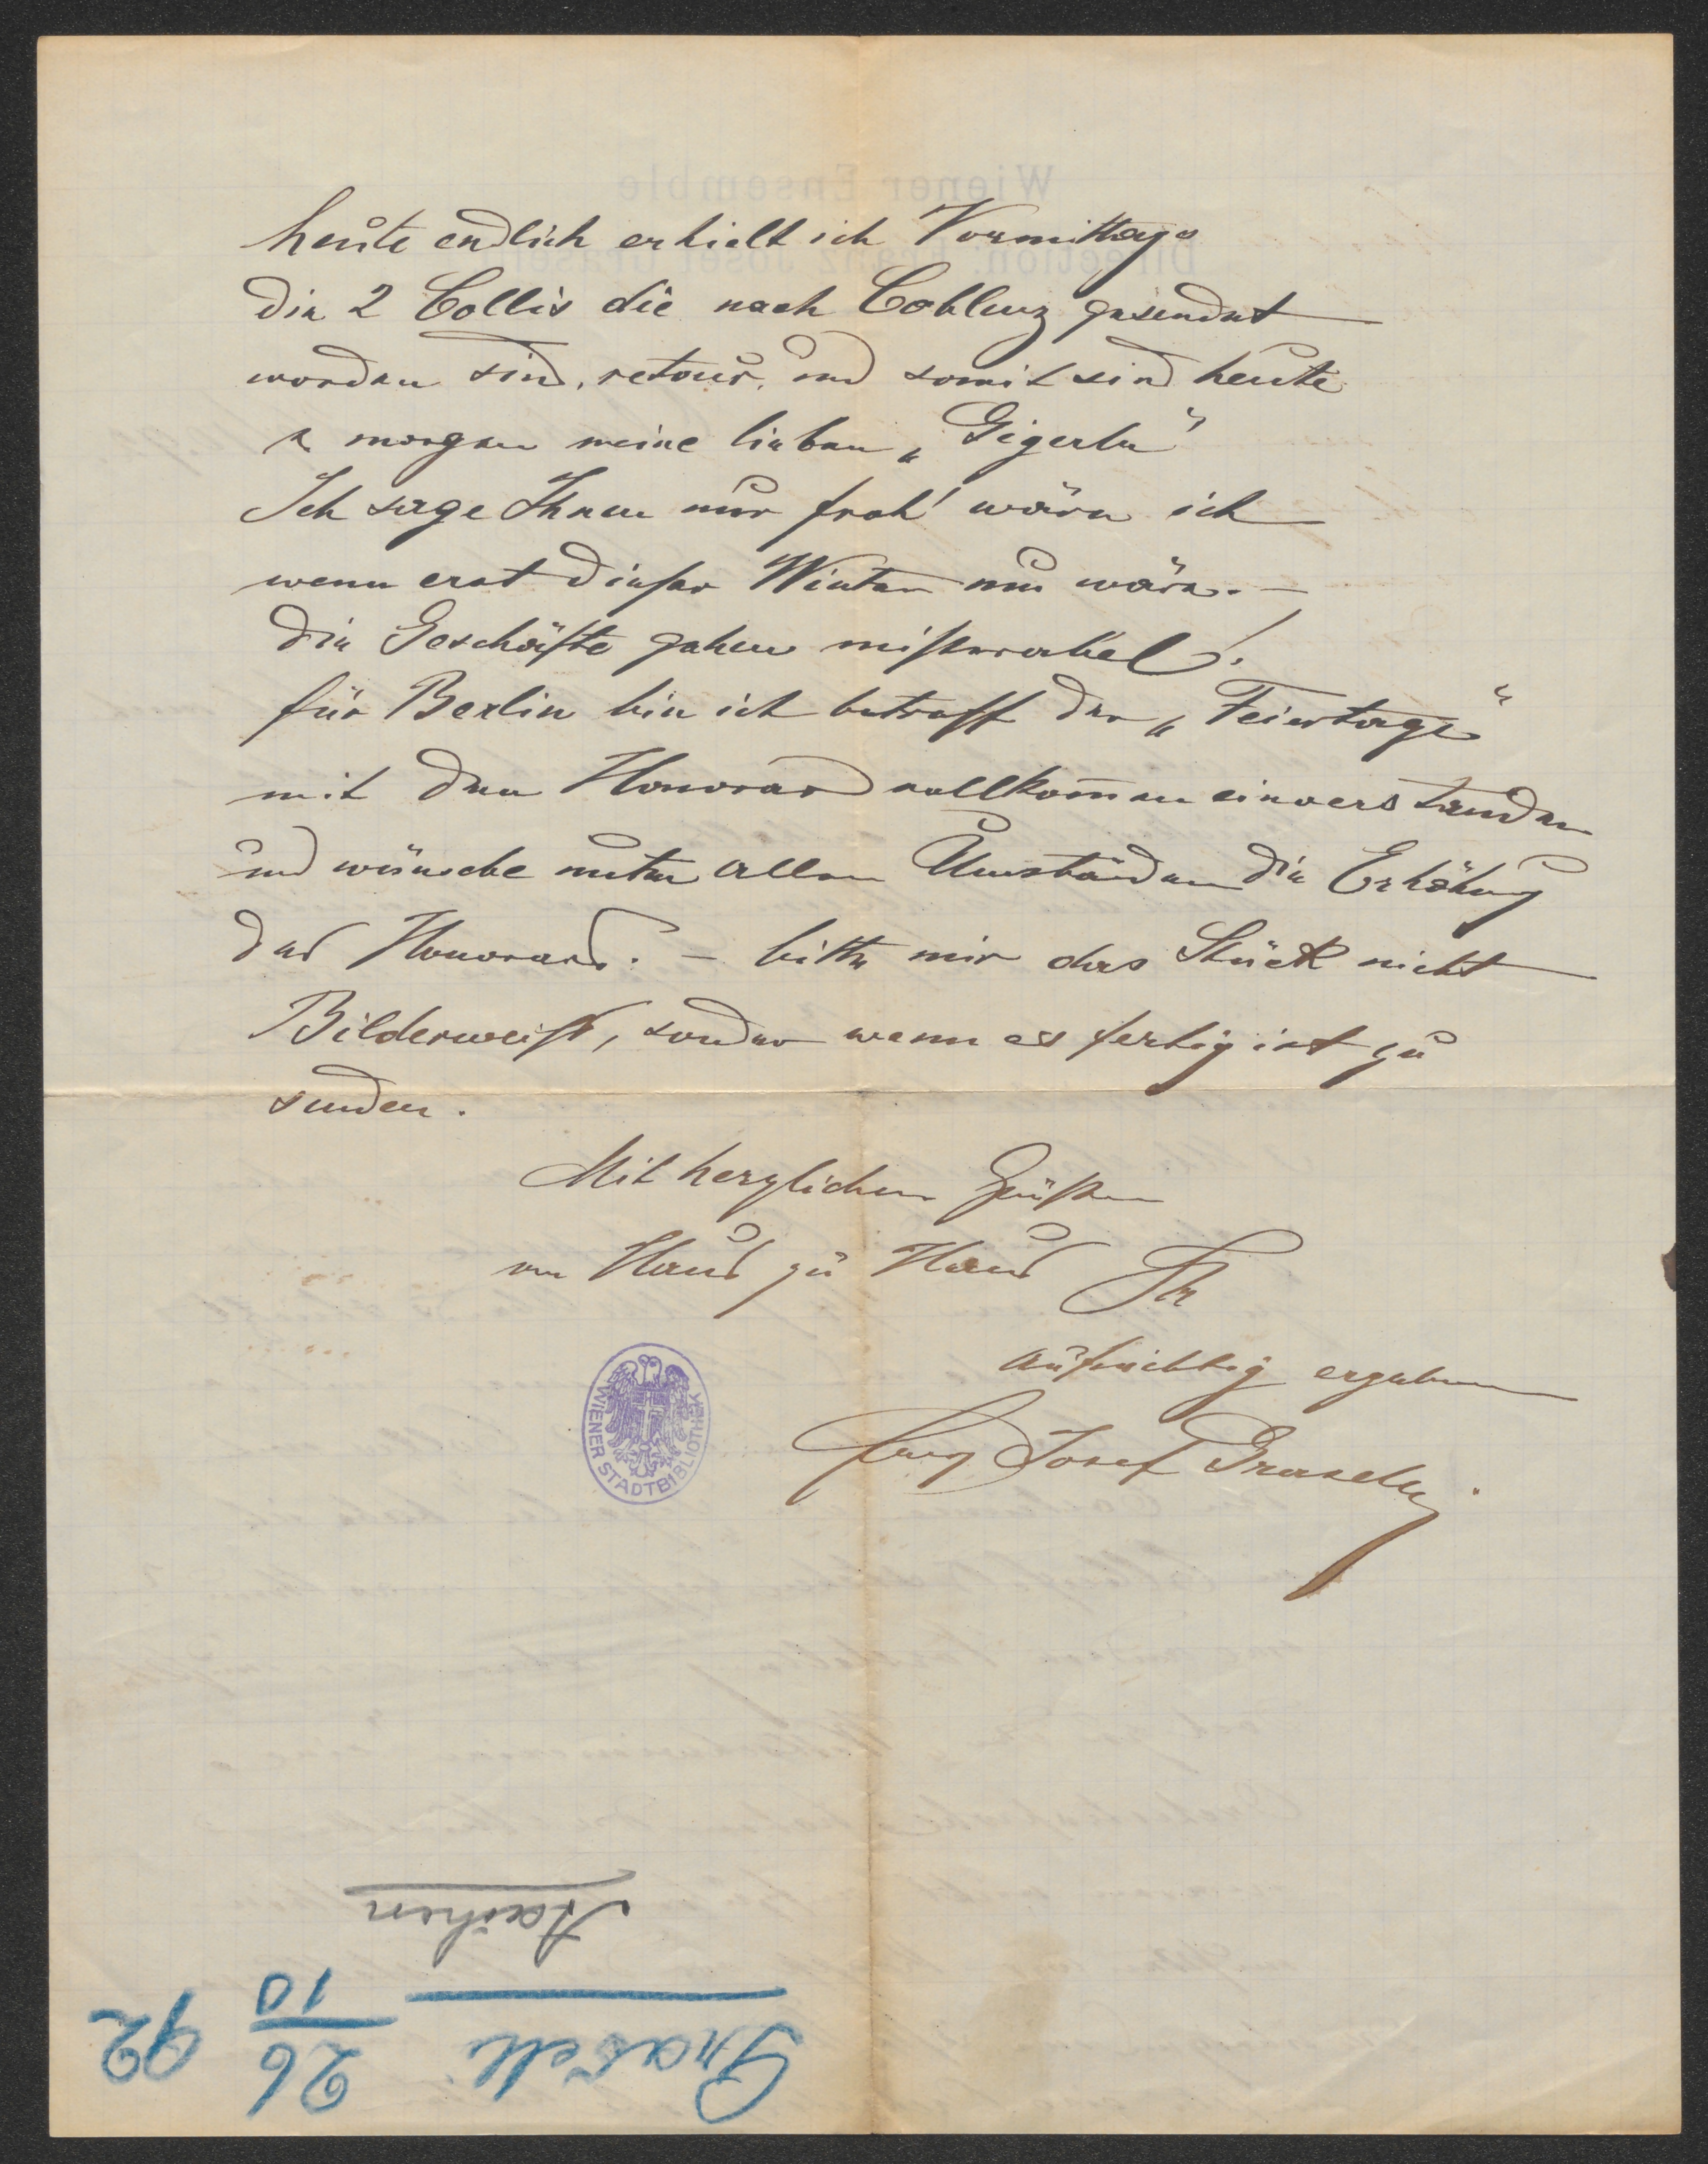 heute endlich erhielt ich Vormittags
die 2 Collis die nach Coblenz gesendet
worden sind, retour, und somit sind heute
& morgen meine lieben „Gigerln"
Ich sage Ihnen nur froh! wäre ich
wenn erst dieser Winter um wäre. –
die Geschäfte gehen misserabel!
für Berlin bin ich betreff der „Feiertage"
mit dem Honorar vollkom̅en einverstanden
und wünsche unter allen Umständen die Erhöhung
des Honorars. – bitte mir das Stück nicht
Bilderweise, sonder wenn es fertig ist zu
senden.
Mit herzlichen Grüßen
von Haus zu Haus Ihr
aufrichtig ergebener
Franz Josef Graselli
WIENER STADTBIBLIOTHEK
Graselli 26/10 92
Aachen
Wiener Ensemble
Direction: Franz Josef Graselli